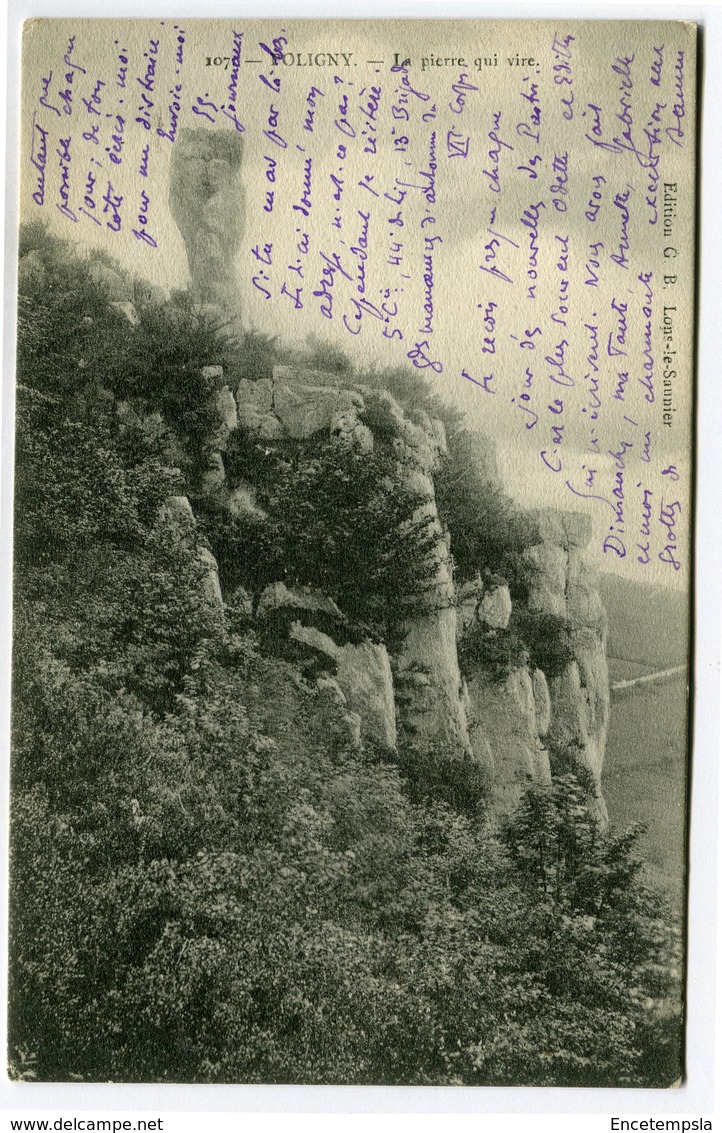 107 — POLIGNY. — La pierre qui vire.
Edition G. B. Lons-le-Saunier
autant que
possible chaque
jour ; de ton
côté écris-moi
pour me distraire !
Envoie-moi
journaux
Si tu m'as pas
donné mon
adresse, n'est-ce pas ?
Cependant je réitère :
5e Cie, 44e de lig, 13e Brigade
VIIe Corps
manœuvres d'automne du
Je reçois presque chaque
jour des nouvelles de
C'est le plus souvent Odette et Edith
qui m'écrivent. Nous avons fait
Dimanche, ma Tante, Annette, Gabrielle
et moi une charmante excursion aux
grottes de